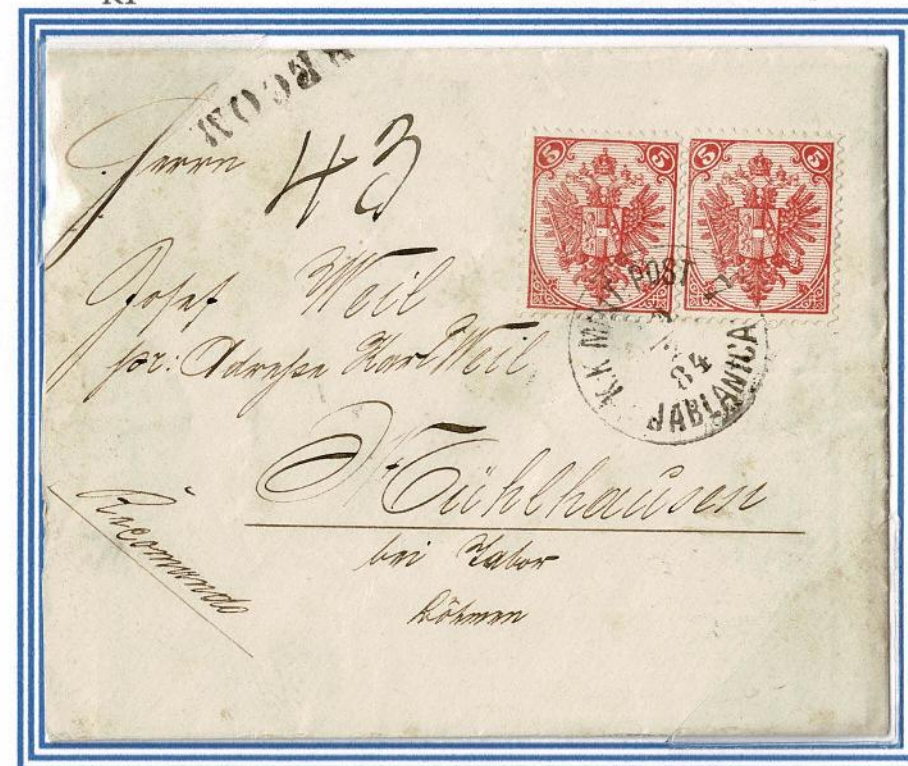 RECOM
Herrn 43
Josef Weil
pr: Adresse Karl Weil
Mühlhausen
bei Tabor
Böhmen
Recomando
5 5 5 5
K.K. MILIT. POST
84
JABLANICA